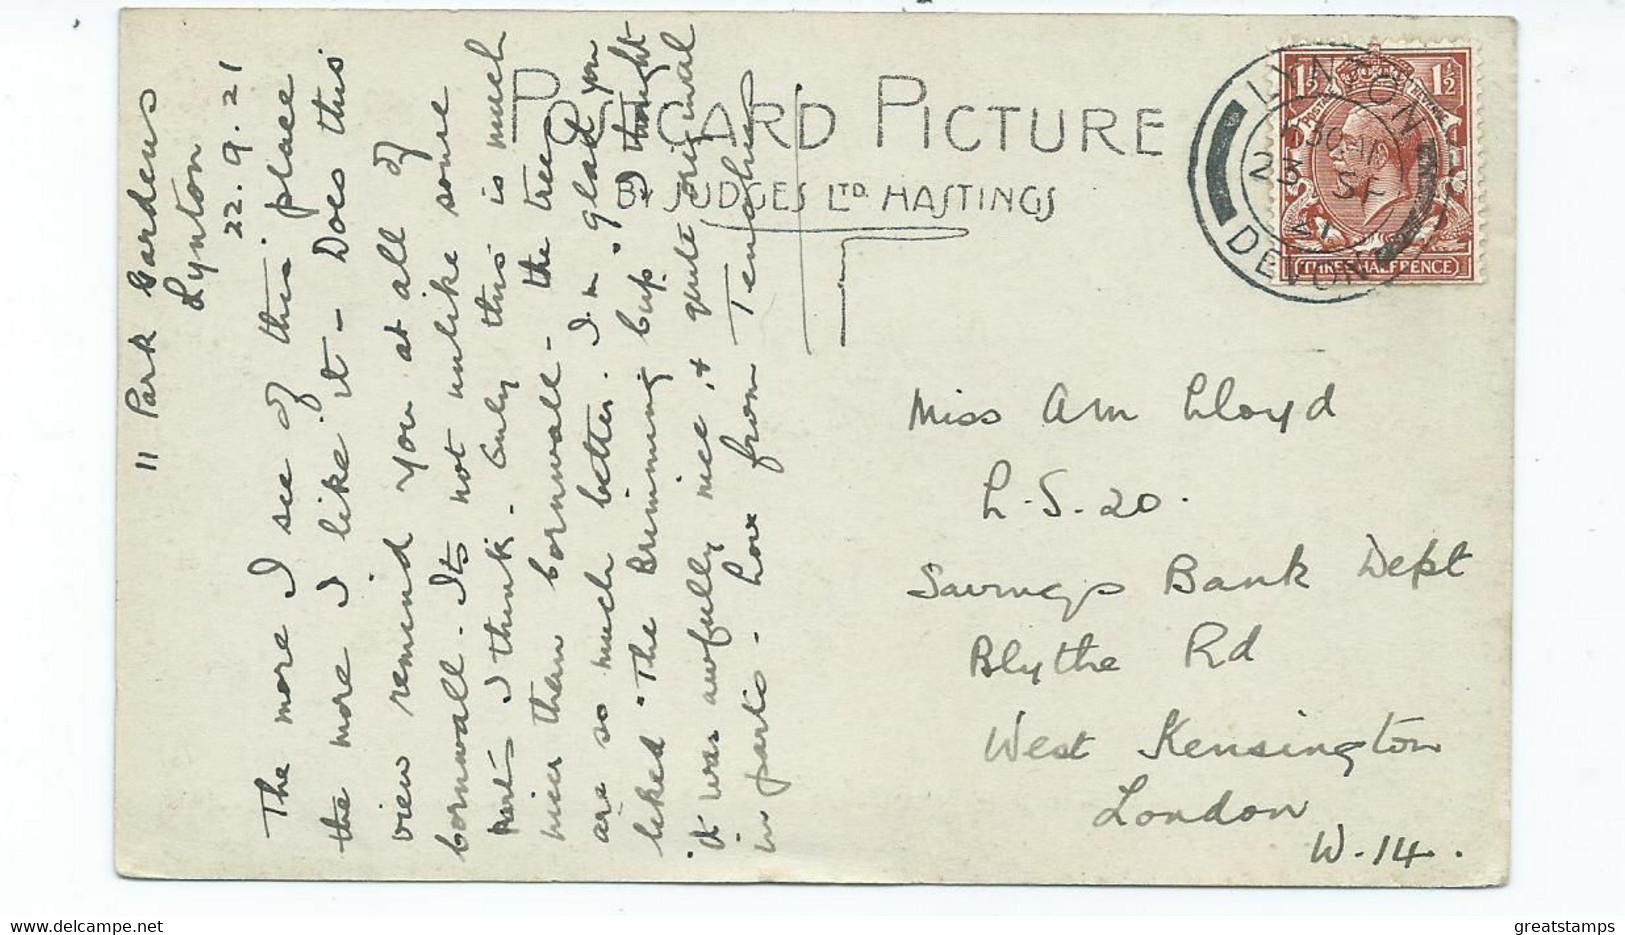 11 Park Gardens
Lynton
22.9.21
The more I see of this place
the more I like it – Does this
view remind you at all of
Cornwall. Its not unlike some
parts I think. Only this is much
nicer than Cornwall – the trees
are so much better. I'm glad you
liked "The Brimming Cup" I thought
it was awfully nice, & quite original
in parts – Love from
POSTCARD PICTURE
BY JUDGES LTD HASTINGS
LYNTON
23 SP
21
DEVON
1½ 1½
POSTAGE REVENUE
THREE HALFPENCE
Miss Am Lloyd
L.S.20.
Savings Bank Dept
Blythe Rd
West Kensington
London
W.14.
greatstamps